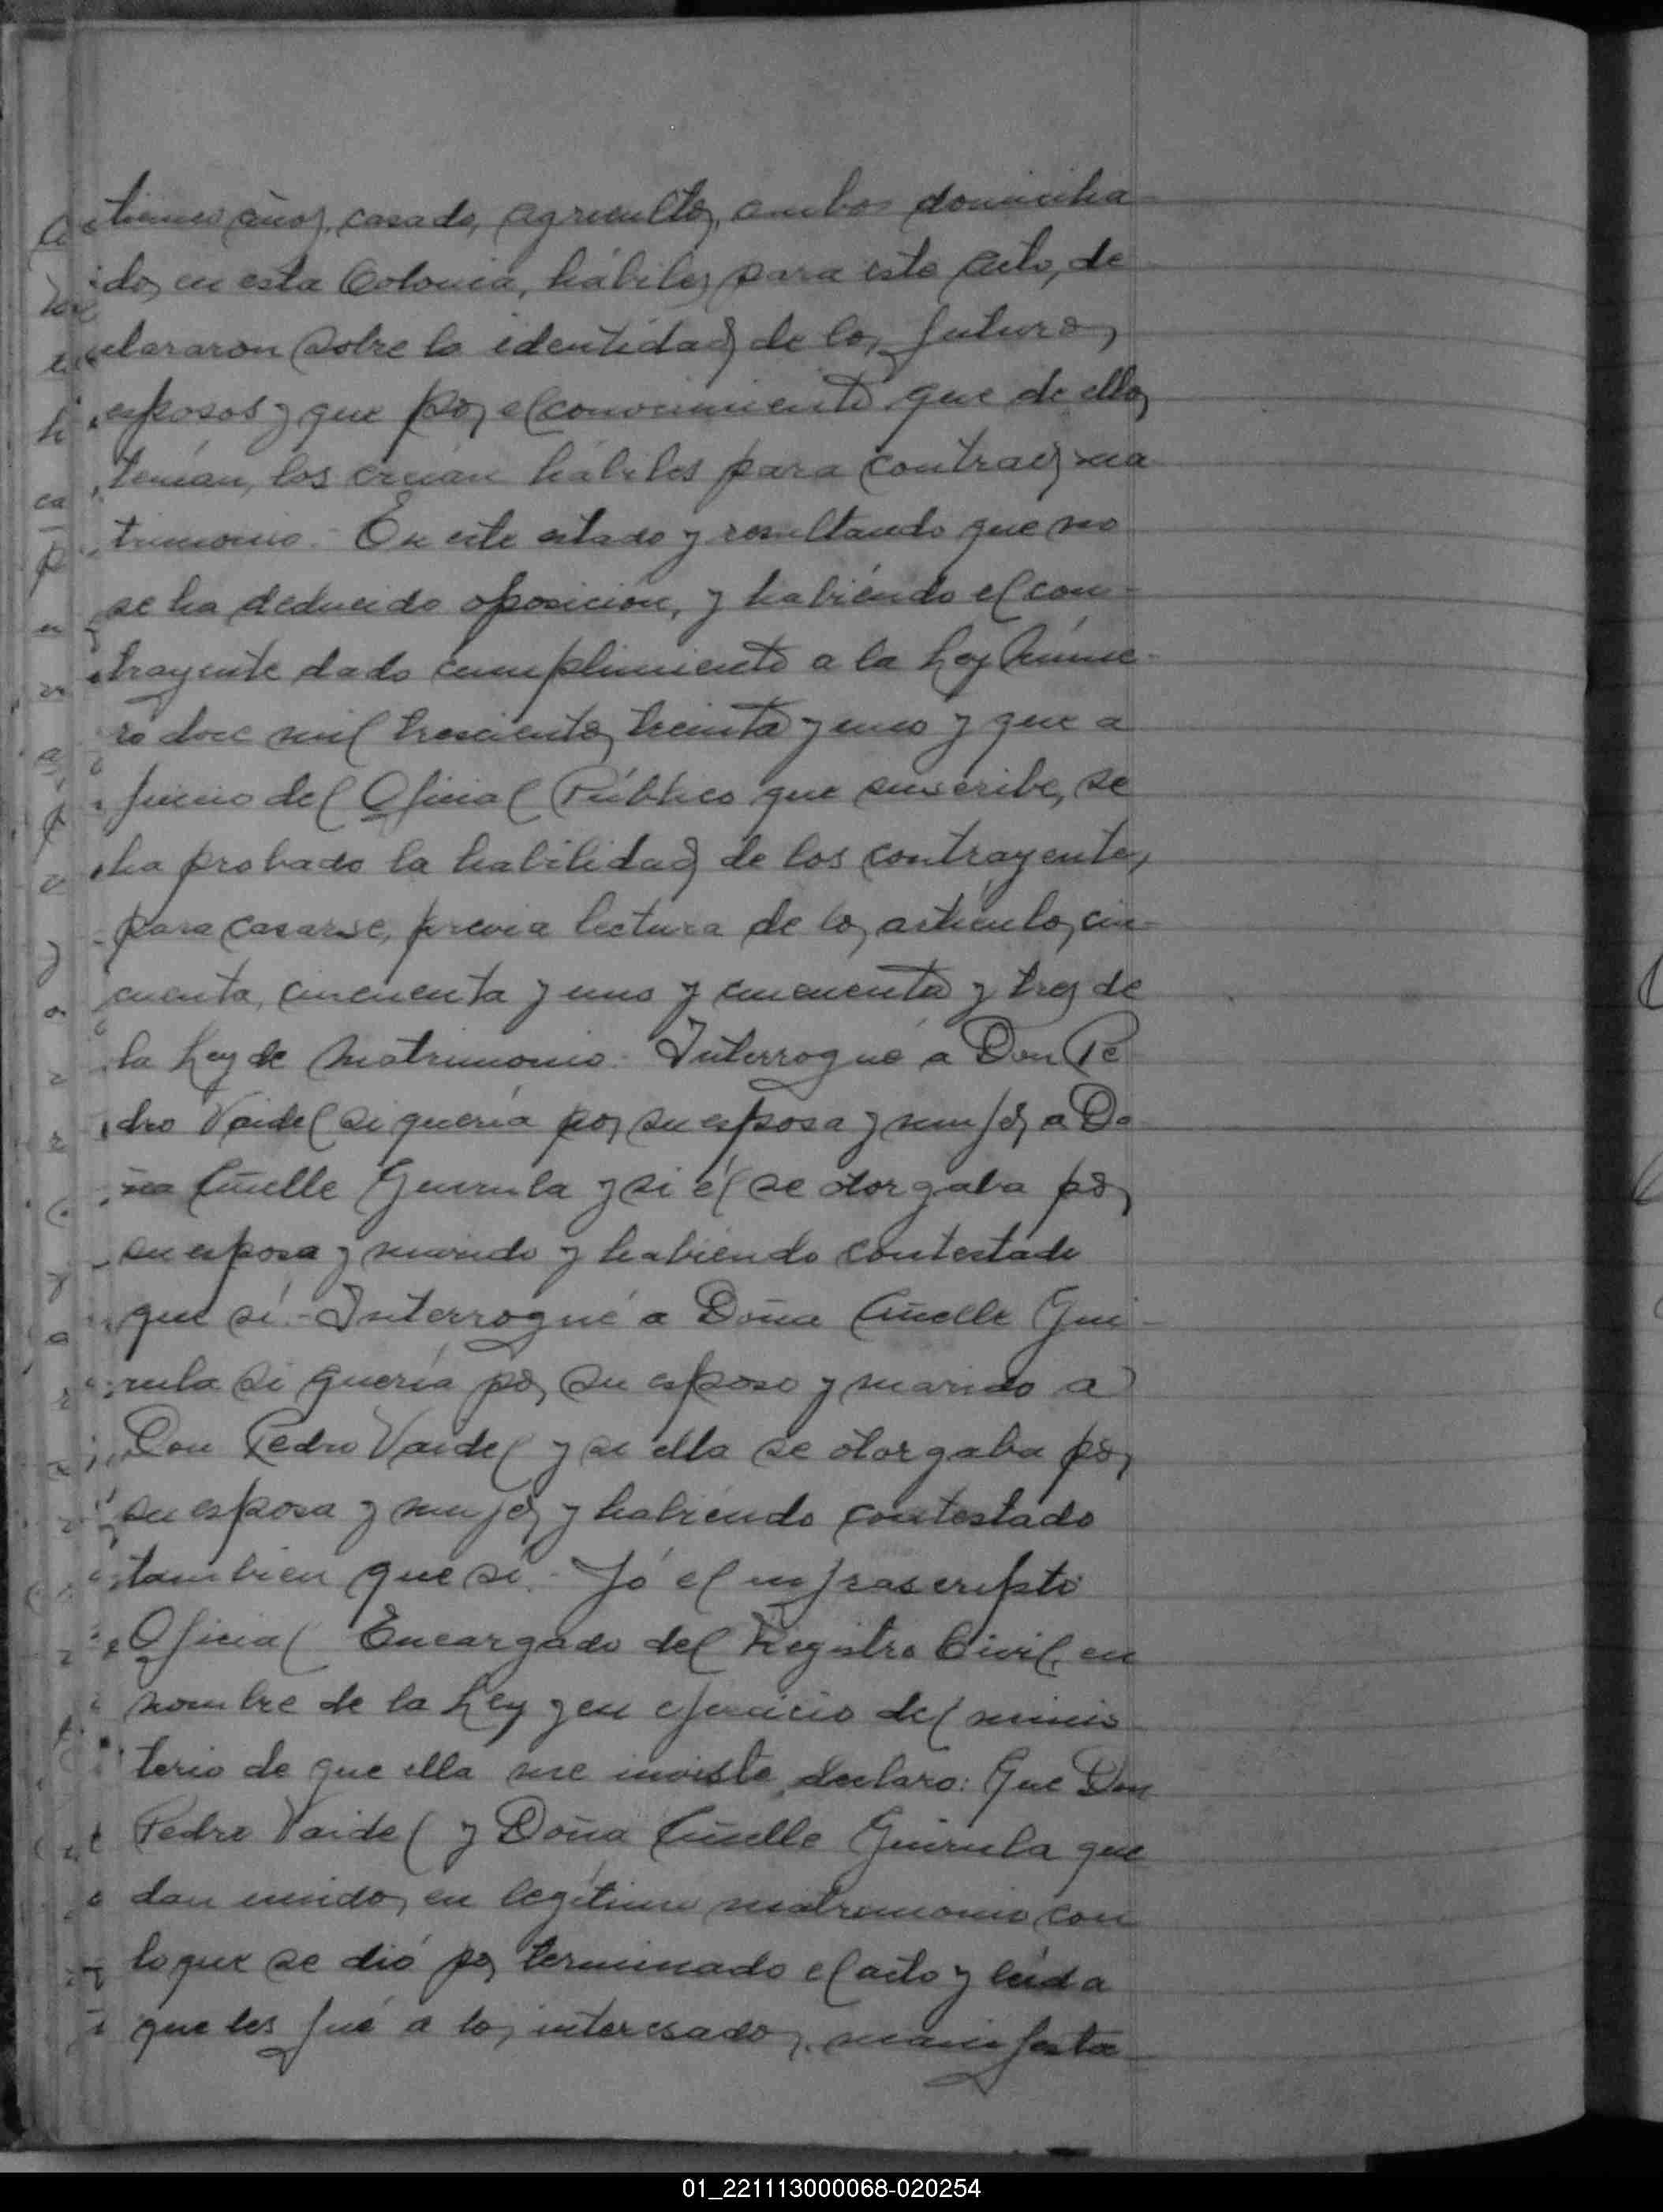 años, casado, agricultor, ambos domicilia-
dos en esta Colonia, hábiles para este acto, de
clararon sobre la identidad de los futuros
esposos y que por el conocimiento que de ellos
tenían, los creían hábiles para contraer ma
trimonio.- En este estado y resultando que no
se ha deducido oposición, y habiendo el con-
trayente dado cumplimiento a la Ley Núme-
ro doce mil trescientos treinta y uno y que a
juicio del Oficial Público que suscribe, se
ha probado la habilidad de los contrayentes
para casarse, previa lectura de los artículos cin-
cuenta, cincuenta y uno y cincuenta y tres de
la Ley de Matrimonio.- Interrogué a Don Pe
dro Vaidel si quería por su esposa y mujer a Do
ña Guirula y si él se otorgaba por
su esposa y marido y habiendo contestado
que sí.- Interrogué a Doña Gui-
rula si quería por su esposo y marido a
Don Pedro Vaidel y si ella se otorgaba por
su esposa y mujer y habiendo contestado
tambien que sí.- Yó el infrascripto
Oficial Encargado del Registro Civil, en
nombre de la Ley y en ejercicio del minis
terio de que ella me inviste, declaro: Que Don
Pedro Vaidel y Doña Guirula que
dan unidos en legítimo matrimonio con
lo que se dió por terminado el acto y leída
que les fué a los interesados, manifesta-
01_221113000068-020254